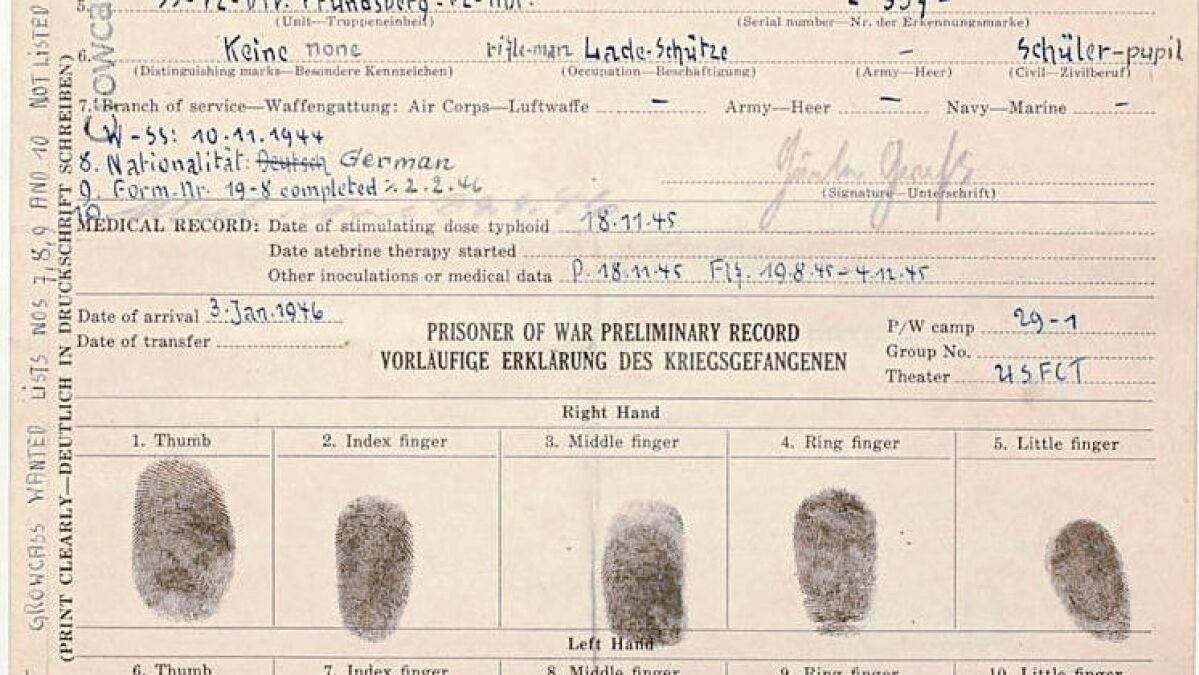 5. SS-Pz-Div. Frundsberg
(Unit—Truppeneinheit) (Serial number—Nr. der Erkennungsmarke)
6. Keine none rifle-man Lade-Schütze – Schüler-pupil
(Distinguishing marks—Besondere Kennzeichen) (Occupation—Beschäftigung) (Army—Heer) (Civil—Zivilberuf)
7. Branch of service—Waffengattung: Air Corps—Luftwaffe – Army—Heer – Navy—Marine –
W-SS: 10.11.1944
8. Nationalität: Deutsch German
9. Form.-Nr. 19-8 completed 2.2.46
(Signature—Unterschrift)
10.
MEDICAL RECORD: Date of stimulating dose typhoid 18.11.45
Date atebrine therapy started
Other inoculations or medical data P. 18.11.45 Flf. 19.8.45-4.12.45
Date of arrival 3.Jan.1946
Date of transfer
PRISONER OF WAR PRELIMINARY RECORD
VORLÄUFIGE ERKLÄRUNG DES KRIEGSGEFANGENEN
P/W camp 29-1
Group No.
Theater USFCT
Right Hand
1. Thumb 2. Index finger 3. Middle finger 4. Ring finger 5. Little finger
Left Hand
6. Thumb 7. Index finger 8. Middle finger 9. Ring finger 10. Little finger
GROWCASS WANTED LISTS NOS 7,8,9 AND 10 NOT LISTED
(PRINT CLEARLY—DEUTLICH IN DRUCKSCHRIFT SCHREIBEN)
Growcas